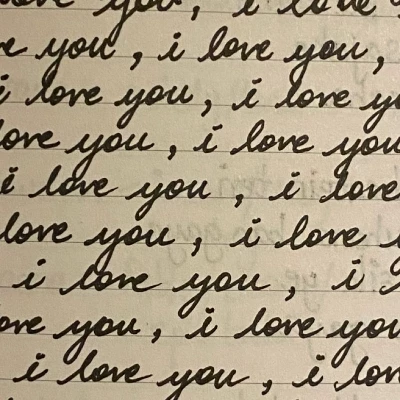 love you, i love
you, i love you,
i love you, i love
love you, i love you
i love you, i love
love you, i love
i love you, i
love you, i love you
i love you, i love